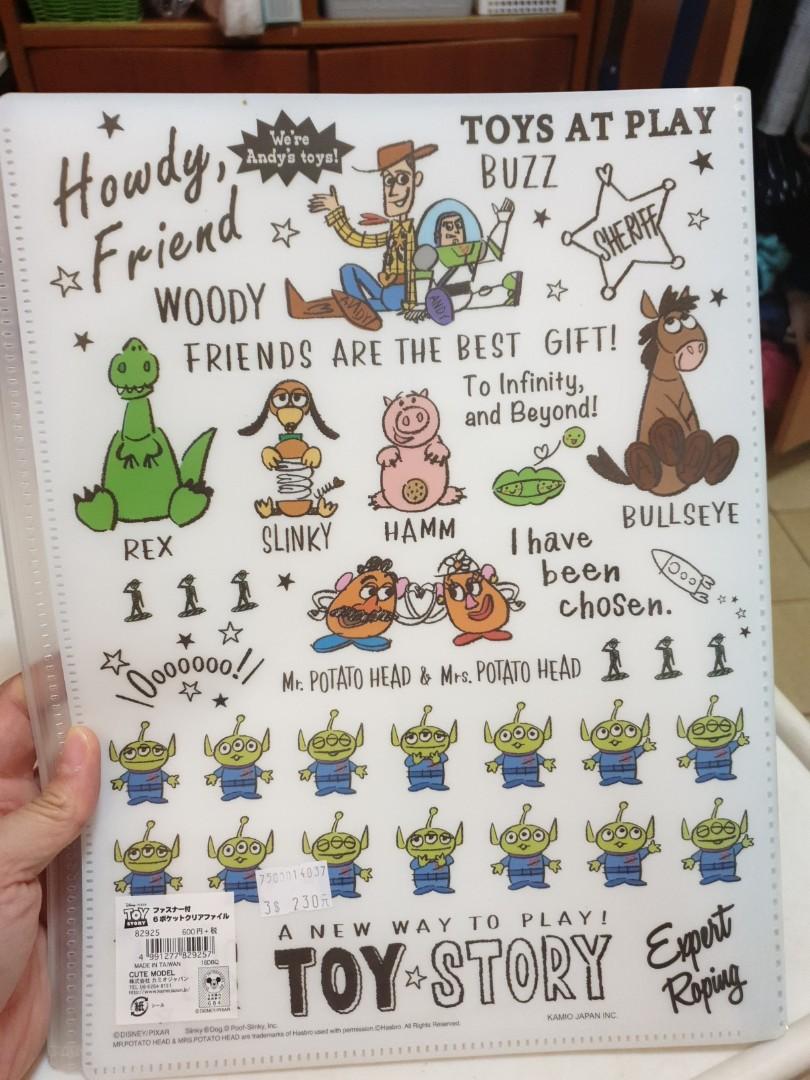 Howdy,
Friend
We're
Andy's toys!
TOYS AT PLAY
BUZZ
SHERIFF
WOODY
ANDY
ANDY
FRIENDS ARE THE BEST GIFT!
To Infinity,
and Beyond!
REX
SLINKY
HAMM
BULLSEYE
I have
been
chosen.
Oooooooo!!
Mr. POTATO HEAD & Mrs. POTATO HEAD
7500014037
3$ 230元
A NEW WAY TO PLAY!
TOY STORY
Expert
Roping
Disney PIXAR
TOY STORY
ファスナー付
6ポケットクリアファイル
82925 600円+税
4 991277 829257
MADE IN TAIWAN 18DBQ
CUTE MODEL
株式会社 カミオジャパン
http://www.kamiojapan.jp/
紙 シール
©DISNEY/PIXAR
KAMIO JAPAN INC.
©DISNEY/PIXAR Slinky®Dog.© Poof-Slinky, Inc.
MR.POTATO HEAD & MRS.POTATO HEAD are trademarks of Hasbro used with permission.©Hasbro. All Rights Reserved.